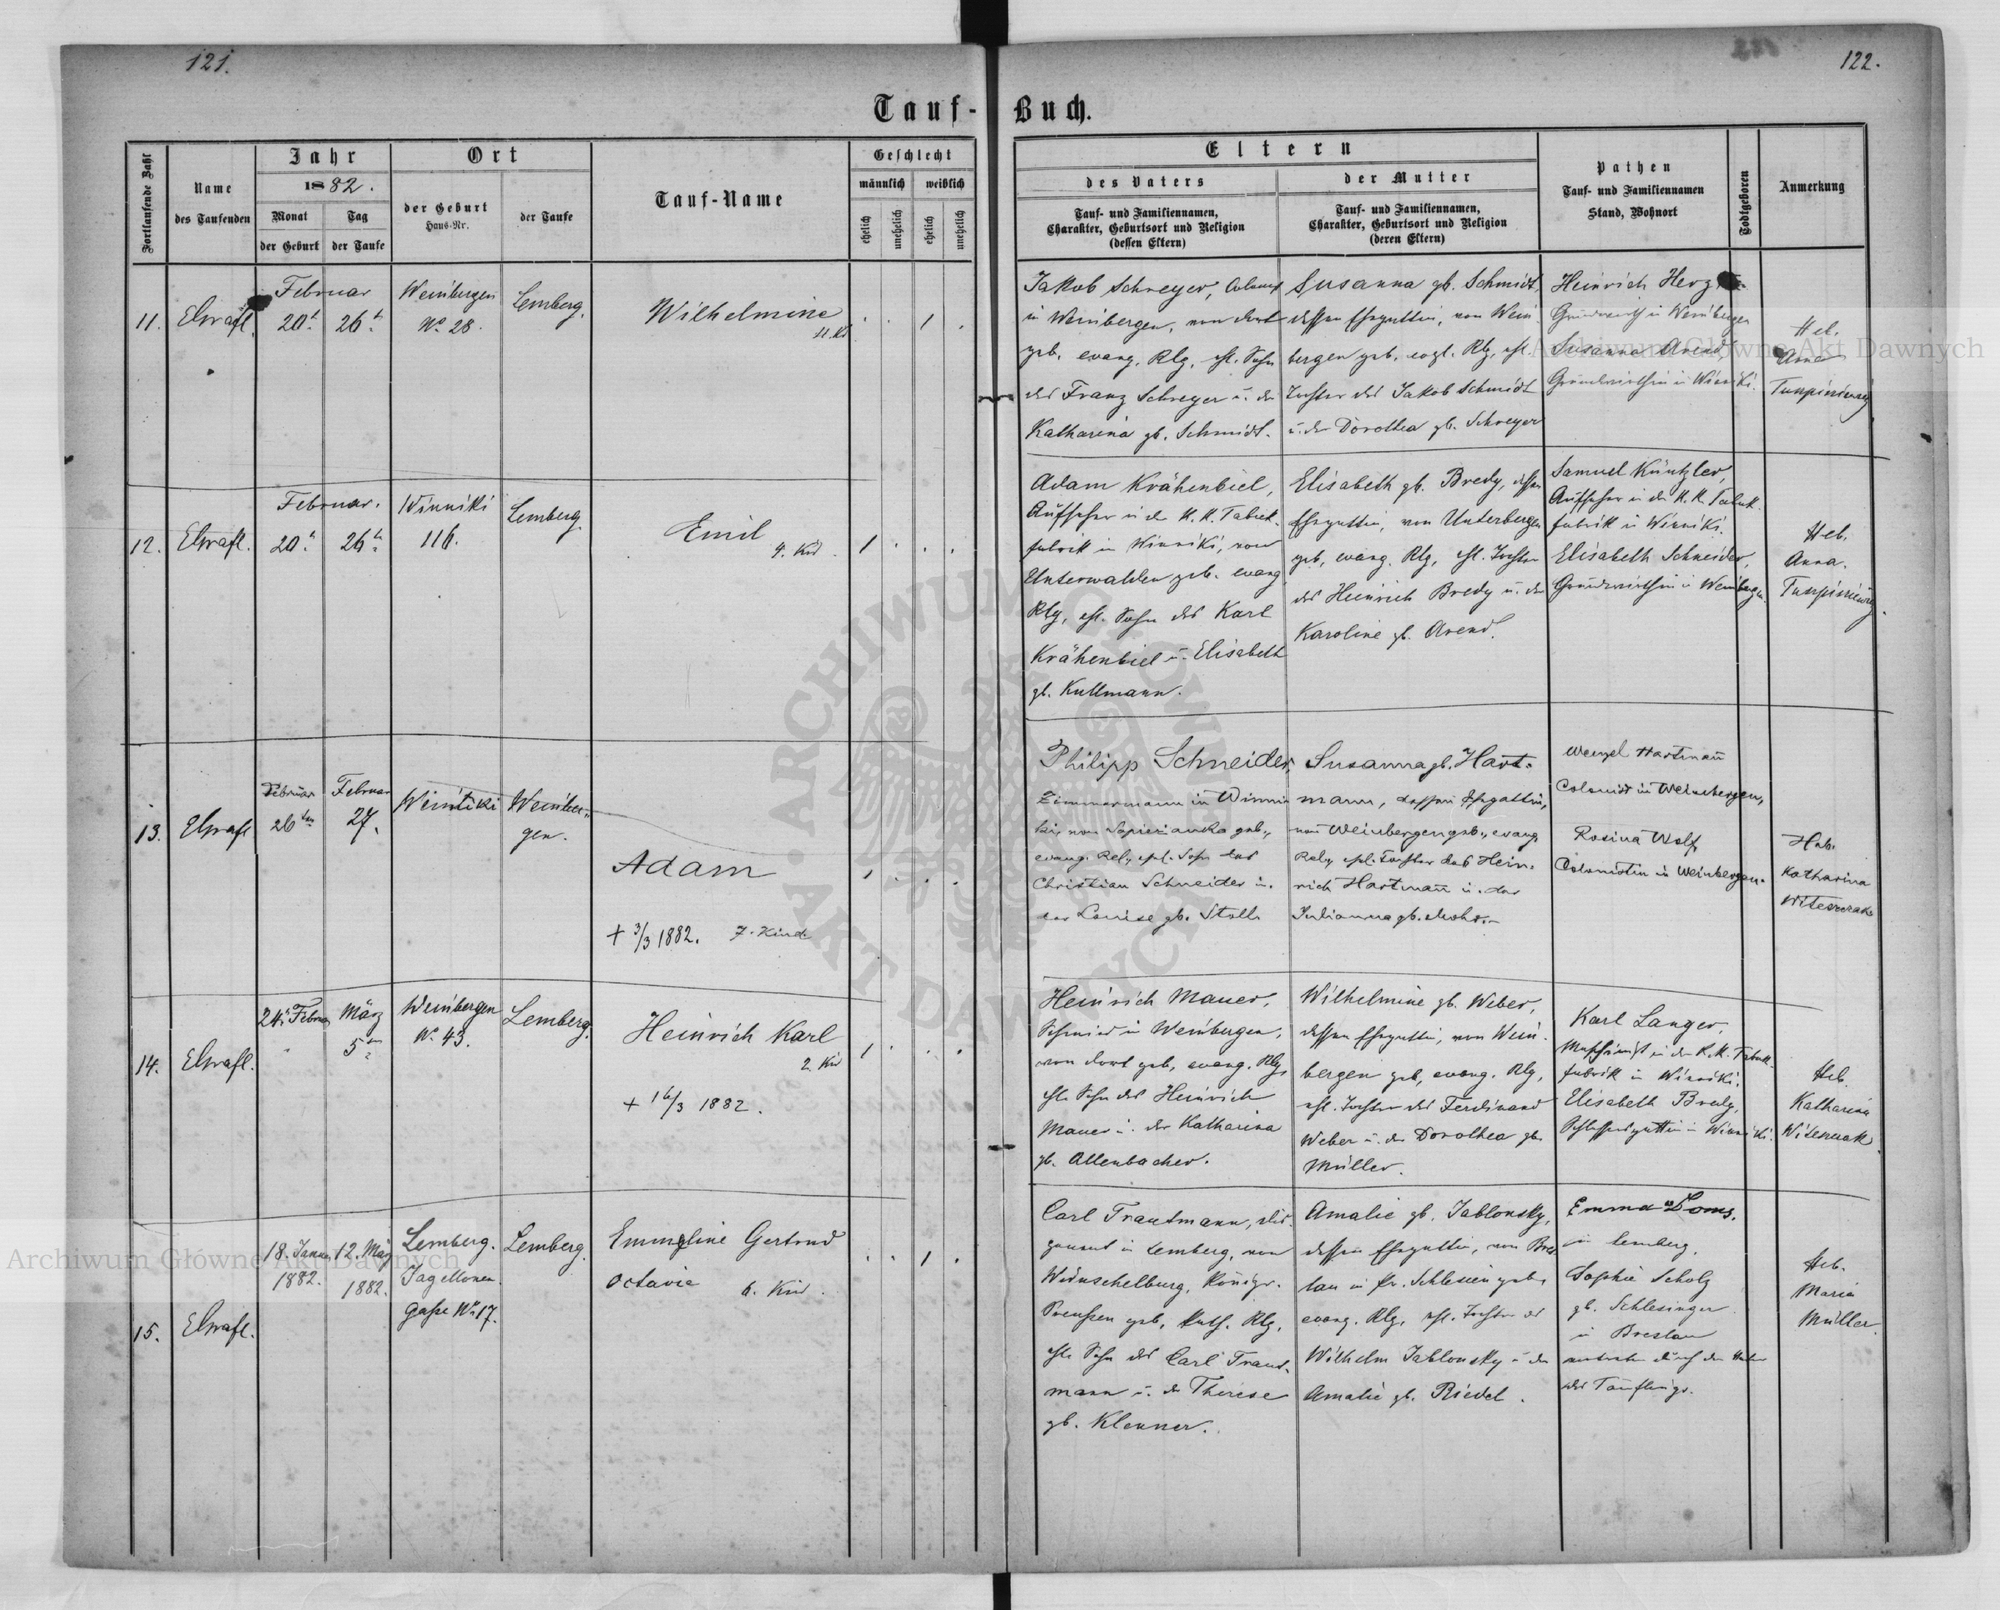 121.
122.
Tauf-Buch.
Fortlaufende Zahl
Name
des Taufenden
Jahr
1882.
Monat
der Geburt
Tag
der Taufe
Ort
der Geburt
Haus-Nr.
der Taufe
Tauf-Name
Geschlecht
männlich
weiblich
ehelich
unehelich
ehelich
unehelich
Eltern
des Vaters
Tauf- und Familiennamen,
Charakter, Geburtsort und Religion
(dessen Eltern)
der Mutter
Tauf- und Familiennamen,
Charakter, Geburtsort und Religion
(deren Eltern)
Pathen
Tauf- und Familiennamen
Stand, Wohnort
Todtgeboren
Anmerkung
11.
Februar
20t.
26t.
Weinbergen
No 28.
Lemberg.
Wilhelmine
11. Kd
Jakob Schreyer, Colonist
in Weinbergen, von dort
geb. evang. Rlg, ehl. Sohn
des Franz Schreyer u. der
Katharina gb. Schmidt.
Susanna gb. Schmidt,
dessen Ehegattin, von Wein-
bergen geb. evgl. Rlg, ehl.
Tochter des Jakob Schmidt
u. der Dorothea gb. Schreyer
Heinrich Herz
Grundwirth in Weinbergen
Susanna Arend,
Grundwirthin in Winniki.
Heb.
Anna
12.
Februar.
20t.
26t.
Winniki
116.
Lemberg.
Emil
4. Kid.
Adam Krähenbiel,
Aufseher in der K. K. Tabak-
fabrik in Winniki, von
Unterwalden geb. evang
Rlg, ehl. Sohn des Karl
Krähenbiel u. Elisabeth
gb. Kullmann.
Elisabeth gb. Bredy, dessen
Ehegattin, von Unterbergen
geb, evang. Rlg, ehl. Tochter
des Heinrich Bredy u. der
Karoline gb. Arend.
Samuel Küntzler,
Aufseher in der K. K. Tabak-
fabrik in Winniki.
Elisabeth Schneider,
Grundwirthin in Weinbergen.
Heb.
Anna.
13.
Februar
26ten
Februar
27.
Weinber-
gen.
Adam
+ 3/3 1882. 7. Kind
Philipp Schneider,
Zimmermann in Winni-
ki, von Sapiezanka geb.,
evang. Rel, ehl. Sohn des
Christian Schneider u.
der Louise gb. Stoll.
Susanna gb. Hart-
mann, dessen Ehegattin,
von Weinbergen geb., evang.
Rel, ehl. Tochter des Hein-
rich Hartmañ u. der
Julianna gb.
Wenzel Hartmañ
Colonist in Weinbergen,
Rosina Wolf,
Colonistin in Weinbergen.
Heb.
Katharina
14.
24t. Februar
März
5ten
Weinbergen
No. 43.
Lemberg.
Heinrich Karl
2. Kid
+ 16/3 1882.
Heinrich Mauer,
Schmied in Weinbergen,
von dort geb, evang. Rlg,
ehl. Sohn des Heinrich
Mauer u. der Katharina
gb. Allenbacher.
Wilhelmine gb. Weber,
dessen Ehegattin, von Wein-
bergen geb, evang. Rlg,
ehl. Tochter des Ferdinand
Weber u. der Dorothea gb.
Müller.
Karl Langer,
Maschinist in der K. K. Tabak-
fabrik in Winniki.
Elisabeth Bredy,
Schlossersgattin in Winniki.
Heb.
Katharina
15.
18. Januar
1882.
12. März
1882.
Lemberg.
Jagellonen-
gasse No 17.
Lemberg.
Emmeline Gertrud
Octavie 6. Kid.
Carl Trautmann,
in Lemberg, von
Wünschelburg, Königr.
Preussen geb, kath. Rlg,
ehl. Sohn des Carl Traut-
mann u. der Therese
gb. Klenner.
Amalie gb. Jablonsky,
dessen Ehegattin, von Bres-
lau in Pr. Schlesien geb.
evang. Rlg, ehl. Tochter des
Wilhelm Jablonsky u. der
Amalie gb. Riedel.
Emma Doms,
in Lemberg.
Sophie Scholz
gb. Schlesinger
in Breslau
vertreten durch den Vater
des Täuflings.
Heb.
Maria
Müller.
Archiwum Główne Akt Dawnych
Archiwum Główne Akt Dawnych
ARCHIWUM GŁÓWNE AKT DAWNYCH